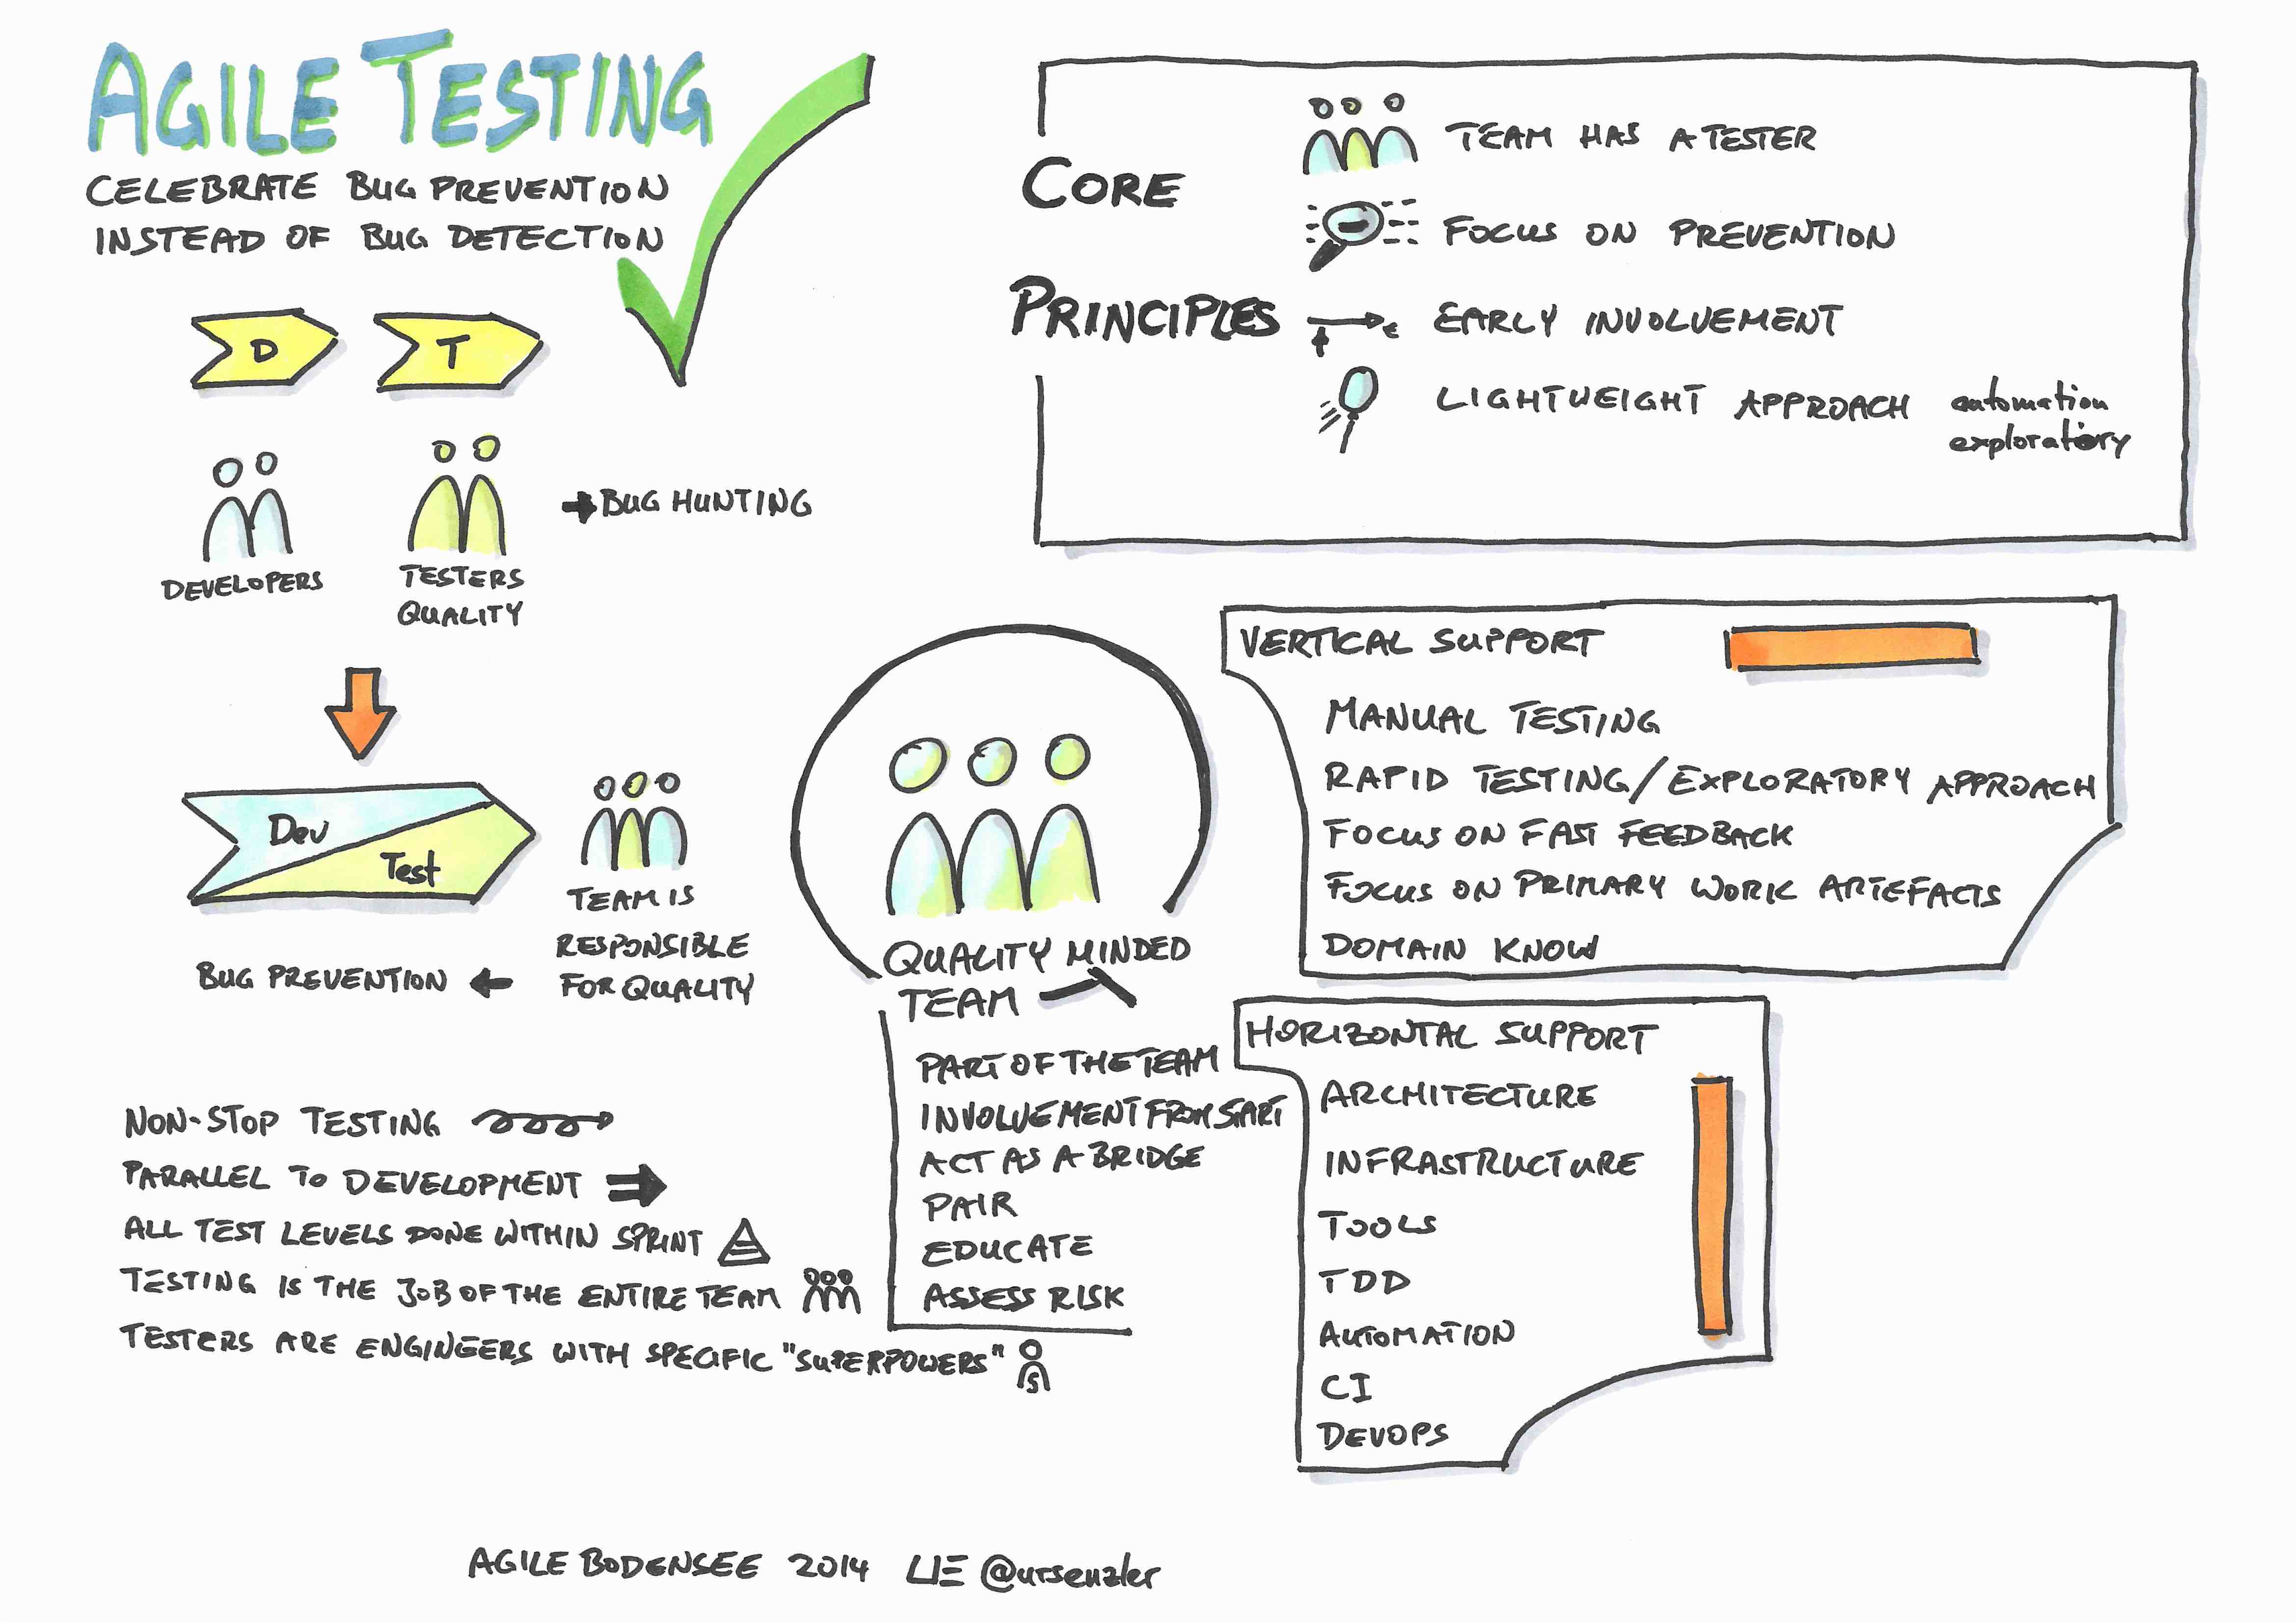 AGILE TESTING
CELEBRATE BUG PREVENTION
INSTEAD OF BUG DETECTION
D
T
DEVELOPERS
TESTERS
QUALITY
BUG HUNTING
Dev
Test
TEAM IS
RESPONSIBLE
FOR QUALITY
BUG PREVENTION
NON-STOP TESTING
PARALLEL TO DEVELOPMENT
ALL TEST LEVELS DONE WITHIN SPRINT
TESTING IS THE JOB OF THE ENTIRE TEAM
TESTERS ARE ENGINEERS WITH SPECIFIC "SUPERPOWERS"
S
CORE
PRINCIPLES
TEAM HAS A TESTER
FOCUS ON PREVENTION
t
EARLY INVOLVEMENT
LIGHTWEIGHT APPROACH
automation
exploratiory
QUALITY MINDED
TEAM
PART OF THE TEAM
INVOLVEMENT FROM START
ACT AS A BRIDGE
PAIR
EDUCATE
ASSESS RISK
VERTICAL SUPPORT
MANUAL TESTING
RAPID TESTING/EXPLORATORY APPROACH
FOCUS ON FAST FEEDBACK
FOCUS ON PRIMARY WORK ARTEFACTS
DOMAIN KNOW
HORIZONTAL SUPPORT
ARCHITECTURE
INFRASTRUCTURE
TOOLS
TDD
AUTOMATION
CI
DEVOPS
AGILE BODENSEE 2014 UE @ursenzler